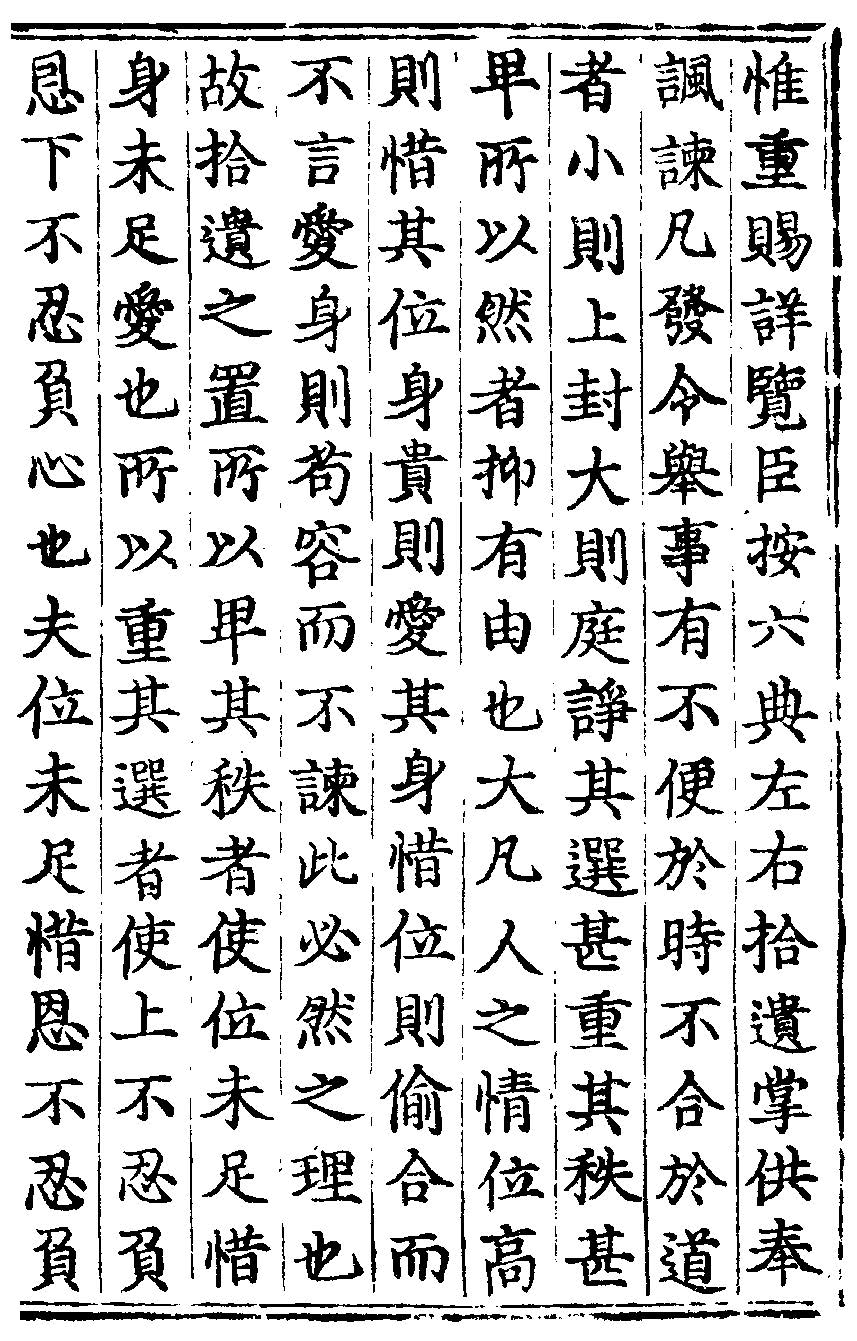 惟重賜詳覽臣按六典左右拾遺掌供奉
諷諫凡發令舉事有不便於時不合於道
者小則上封大則庭諍其選甚重其秩甚
卑所以然者抑有由也大凡人之情位高
則惜其位身貴則愛其身惜位則偷合而
不言愛身則苟容而不諫此必然之理也
故拾遺之置所以卑其秩者使位未足惜
身未足愛也所以重其選者使上不忍負
恩下不忍負心也夫位未足惜恩不忍負